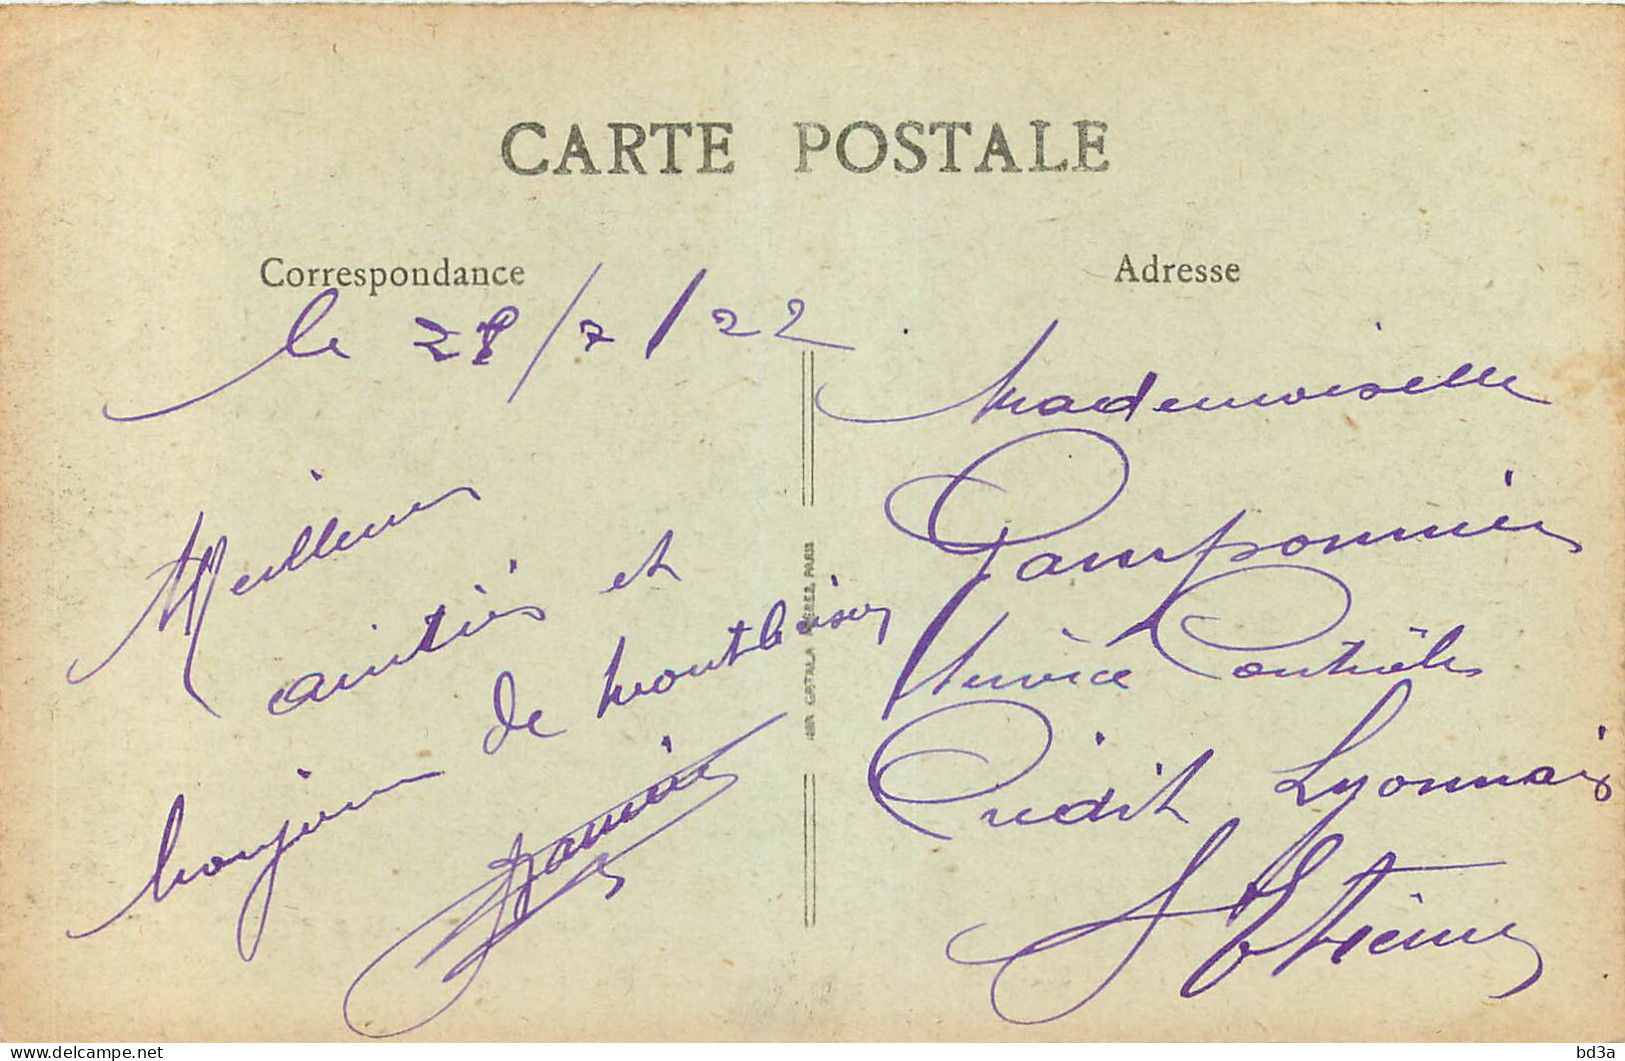 CARTE POSTALE
Correspondance
le 28/7/22
Meilleures
amitiés et
bonjour de Montbrison
Adresse
Mademoiselle
Pamponnier
Service Contrôles
Crédit Lyonnais
St Etienne
IMP. CATALA FRERES, PARIS
delcampe.net
bd3a